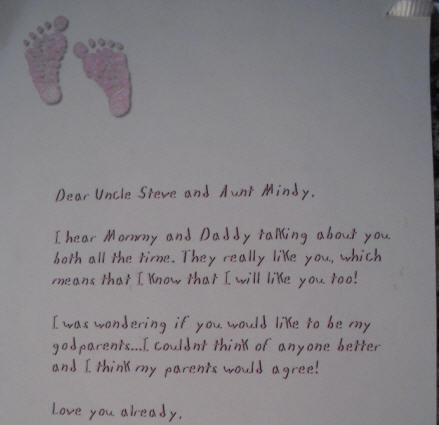 Dear Uncle Steve and Aunt Mindy.
I hear Mommy and Daddy talking about you
both all the time. They really like you, which
means that I know that I will like you too!
I was wondering if you would like to be my
godparents...I couldnt think of anyone better
and I think my parents would agree!
Love you already,